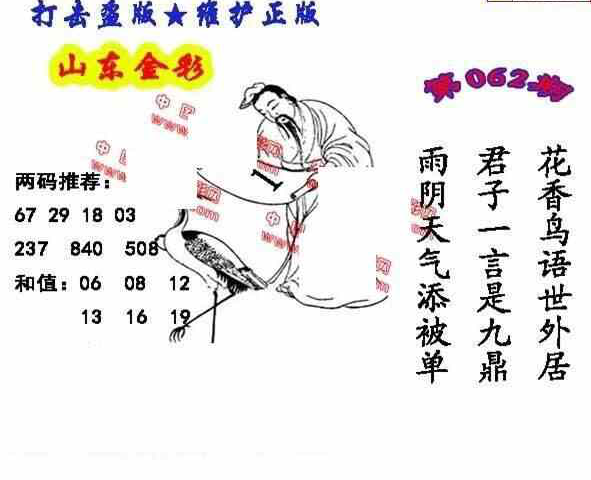 打击盗版★维护正版
山东金彩
第062期
两码推荐：
67 29 18 03
237 840 508
和值：06 08 12
13 16 19
1
花香鸟语世外居
君子一言是九鼎
雨阴天气添被单